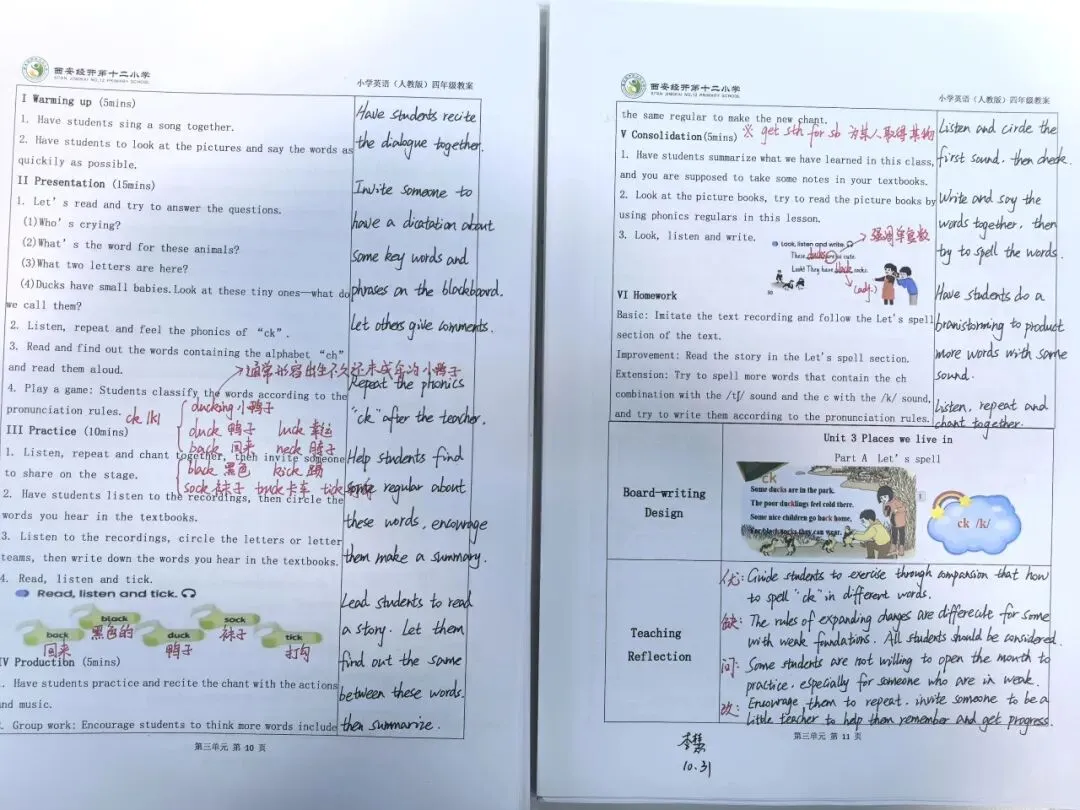 西安经开第十二小学
XI'AN JINGKAI NO.12 PRIMARY SCHOOL
小学英语（人教版）四年级教案
I Warming up (5mins)
1. Have students sing a song together.
2. Have students to look at the pictures and say the words as
quickily as possible.
II Presentation (15mins)
1. Let's read and try to answer the questions.
(1)Who's crying?
(2)What's the word for these animals?
(3)What two letters are here?
(4)Ducks have small babies. Look at these tiny ones—what do
we call them?
2. Listen, repeat and feel the phonics of "ck".
3. Read and find out the words containing the alphabet "ch"
and read them aloud.
通常形容出生不久还未成年的小鸭子
4. Play a game: Students classify the words according to the
pronunciation rules.
ck /k/
ducking 小鸭子
duck 鸭子 luck 幸运
back 回来 neck 脖子
black 黑色 kick 踢
sock 袜子 truck 卡车 tick
III Practice (10mins)
1. Listen, repeat and chant together, then invite someone
to share on the stage.
2. Have students listen to the recordings, then circle the
words you hear in the textbooks.
3. Listen to the recordings, circle the letters or letter
teams, then write down the words you hear in the textbooks.
4. Read, listen and tick.
Read, listen and tick.
back black duck sock tick
回来 黑色的 鸭子 袜子 打勾
IV Production (5mins)
1. Have students practice and recite the chant with the actions
and music.
2. Group work: Encourage students to think more words include
Have students recite
the dialogue together.
Invite someone to
have a dicatation about
some key words and
phrases on the blockboard.
Let others give comments.
Repeat the phonics
"ck" after the teacher.
Help students find
some regular about
these words, encourage
them make a summary.
Lead students to read
a story. Let them
find out the same
between these words.
then summarize.
第三单元 第 10 页
西安经开第十二小学
XI'AN JINGKAI NO.12 PRIMARY SCHOOL
小学英语（人教版）四年级教案
the same regular to make the new chant.
V Consolidation(5mins)
※ get sth for sb 为某人取得某物
1. Have students summarize what we have learned in this class,
and you are supposed to take some notes in your textbooks.
2. Look at the picture books, try to read the picture books by
using phonics regulars in this lesson.
3. Look, listen and write.
Look, listen and write.
强调单复数
These ducks are so cute.
Look! They have black socks.
(adj.)
VI Homework
Basic: Imitate the text recording and follow the Let's spell
section of the text.
Improvement: Read the story in the Let's spell section.
Extension: Try to spell more words that contain the ch
combination with the /tʃ/ sound and the c with the /k/ sound,
and try to write them according to the pronunciation rules.
Listen and circle the
first sound. then check.
Write and say the
words together, then
try to spell the words.
Have students do a
branistorming to product
more words with some
sound.
Listen, repeat and
chant together.
Board-writing
Design
Unit 3 Places we live in
Part A Let's spell
ck
Some ducks are in the park.
The poor ducklings feel cold there.
Some nice children go back home.
For black socks they can wear.
ck /k/
Teaching
Reflection
优: Guide students to exercise through comparsion that how
to spell "ck" in different words.
缺: The rules of expanding changes are differecate for some
with weak foundations. All students should be considered
问: Some students are not willing to open the mouth to
practice. especially for someone who are in weak.
改: Encourage them to repeat. invite someone to be a
little teacher to help them remember and get progress.
第三单元 第 11 页
10.31